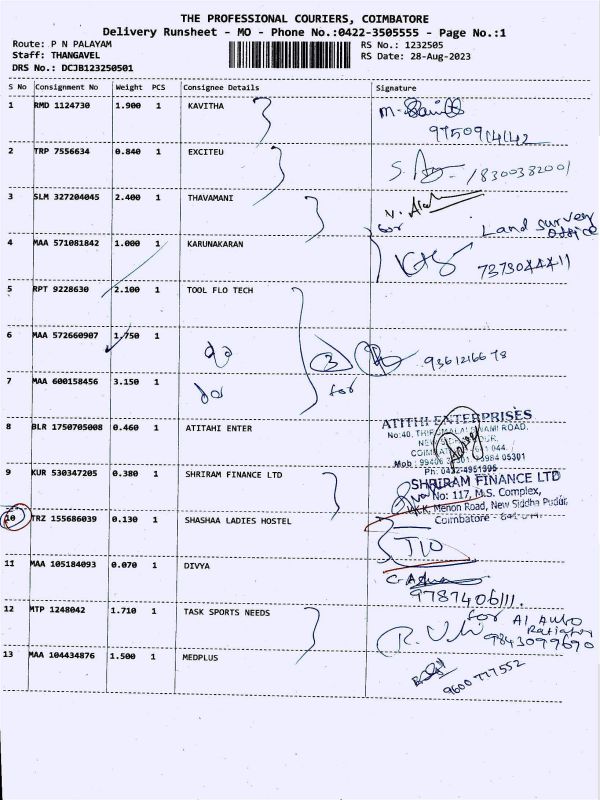 THE PROFESSIONAL COURIERS, COIMBATORE
Delivery Runsheet - MO - Phone No.:0422-3505555 - Page No.:1
Route: P N PALAYAM RS No.: 1232505
Staff: THANGAVEL RS Date: 28-Aug-2023
DRS No.: DCJB123250501
S No Consignment No Weight PCS Consignee Details Signature
1 RMD 1124730 1.900 1 KAVITHA
2 TRP 7556634 0.840 1 EXCITEU
S. 78300382001
3 SLM 327204045 2.400 1 THAVAMANI
for
Land survey
office
4 MAA 571081842 1.000 1 KARUNAKARAN
7373044411
5 RPT 9228630 2.100 1 TOOL FLO TECH
6 MAA 572660907 1.750 1
do 3
7 MAA 600158456 3.150 1
for
8 BLR 1750705008 0.460 1 ATITAHI ENTER
ATITHI ENTERPRISES
Ph: 0422-4951395
9 KUR 530347205 0.380 1 SHRIRAM FINANCE LTD
SHRIRAM FINANCE LTD
No: 117, M.S. Complex,
V.K.K. Menon Road, New Siddha Pudur,
Coimbatore
10 TRZ 155686039 0.130 1 SHASHAA LADIES HOSTEL
11 MAA 105184093 0.070 1 DIVYA
12 MTP 1248042 1.710 1 TASK SPORTS NEEDS
for
9843099690
13 MAA 104434876 1.500 1 MEDPLUS
9600 777552